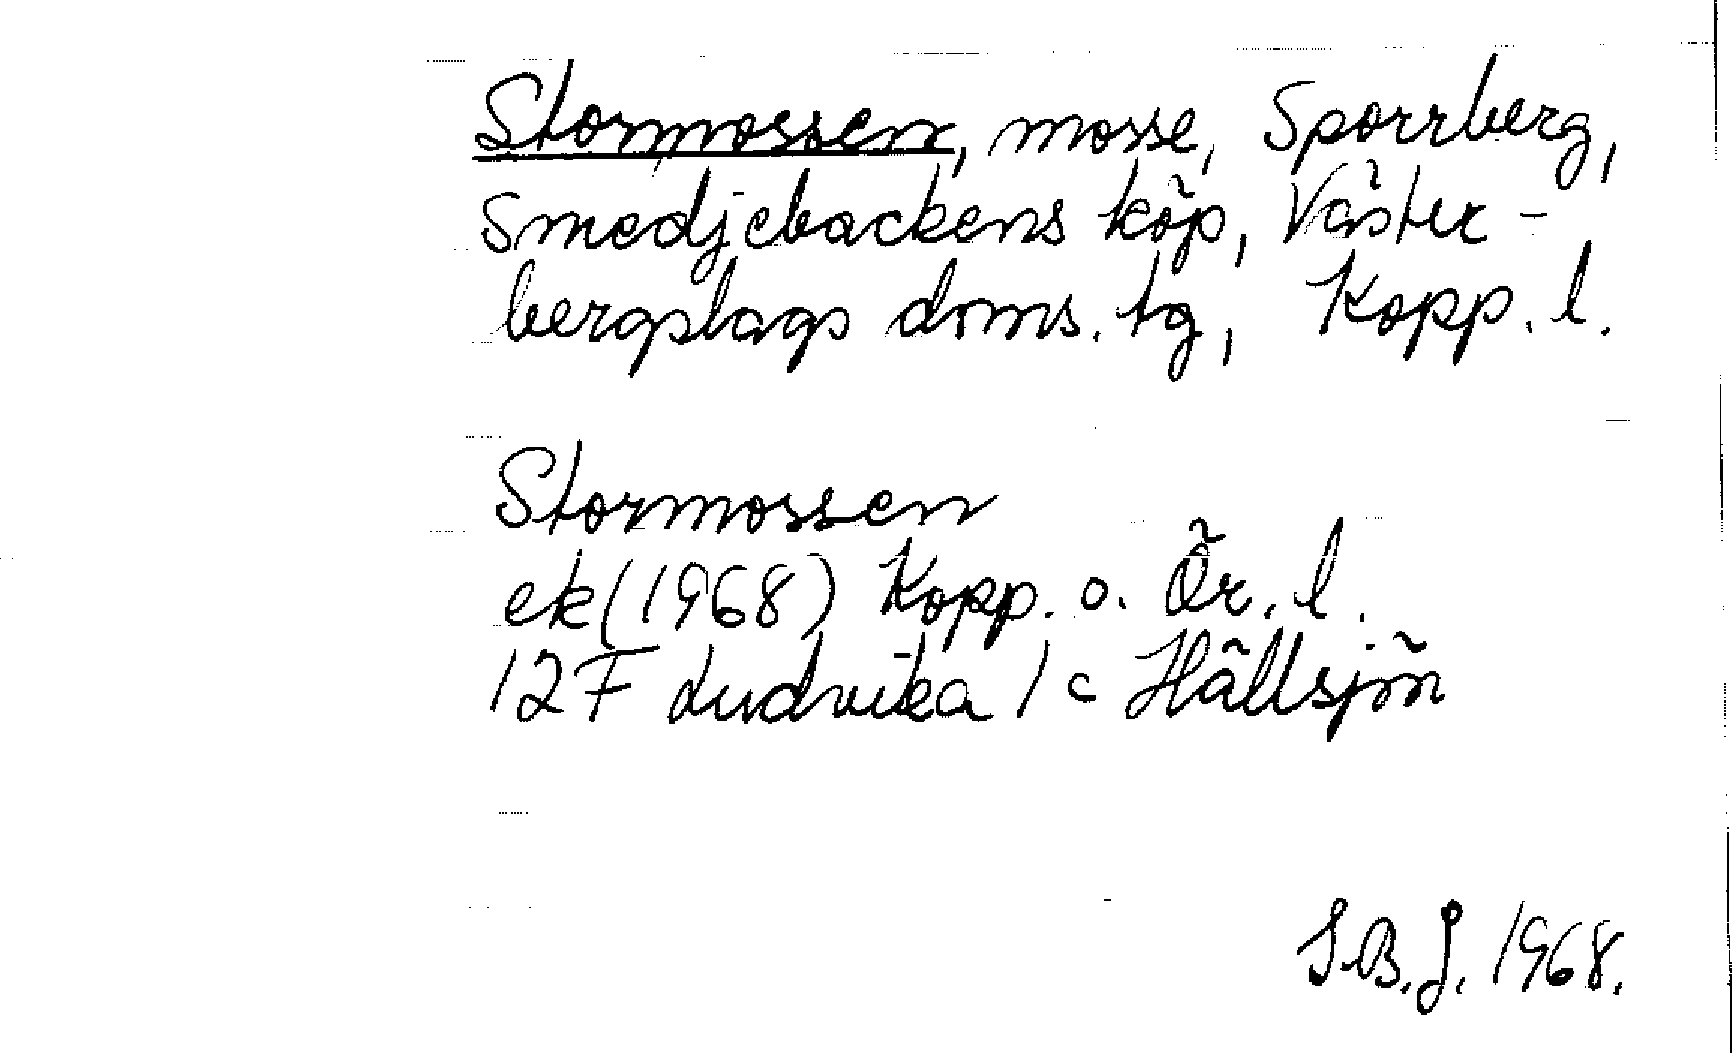 Stormossen, mosse, Sporrberg,
Smedjebackens köp, Väster-
bergslags doms. tg, Kopp. l.
Stormossen
ek (1968) Kopp. o. Ör. l.
12F Ludvika 1 c Hällsjön
S.B.J. 1968.